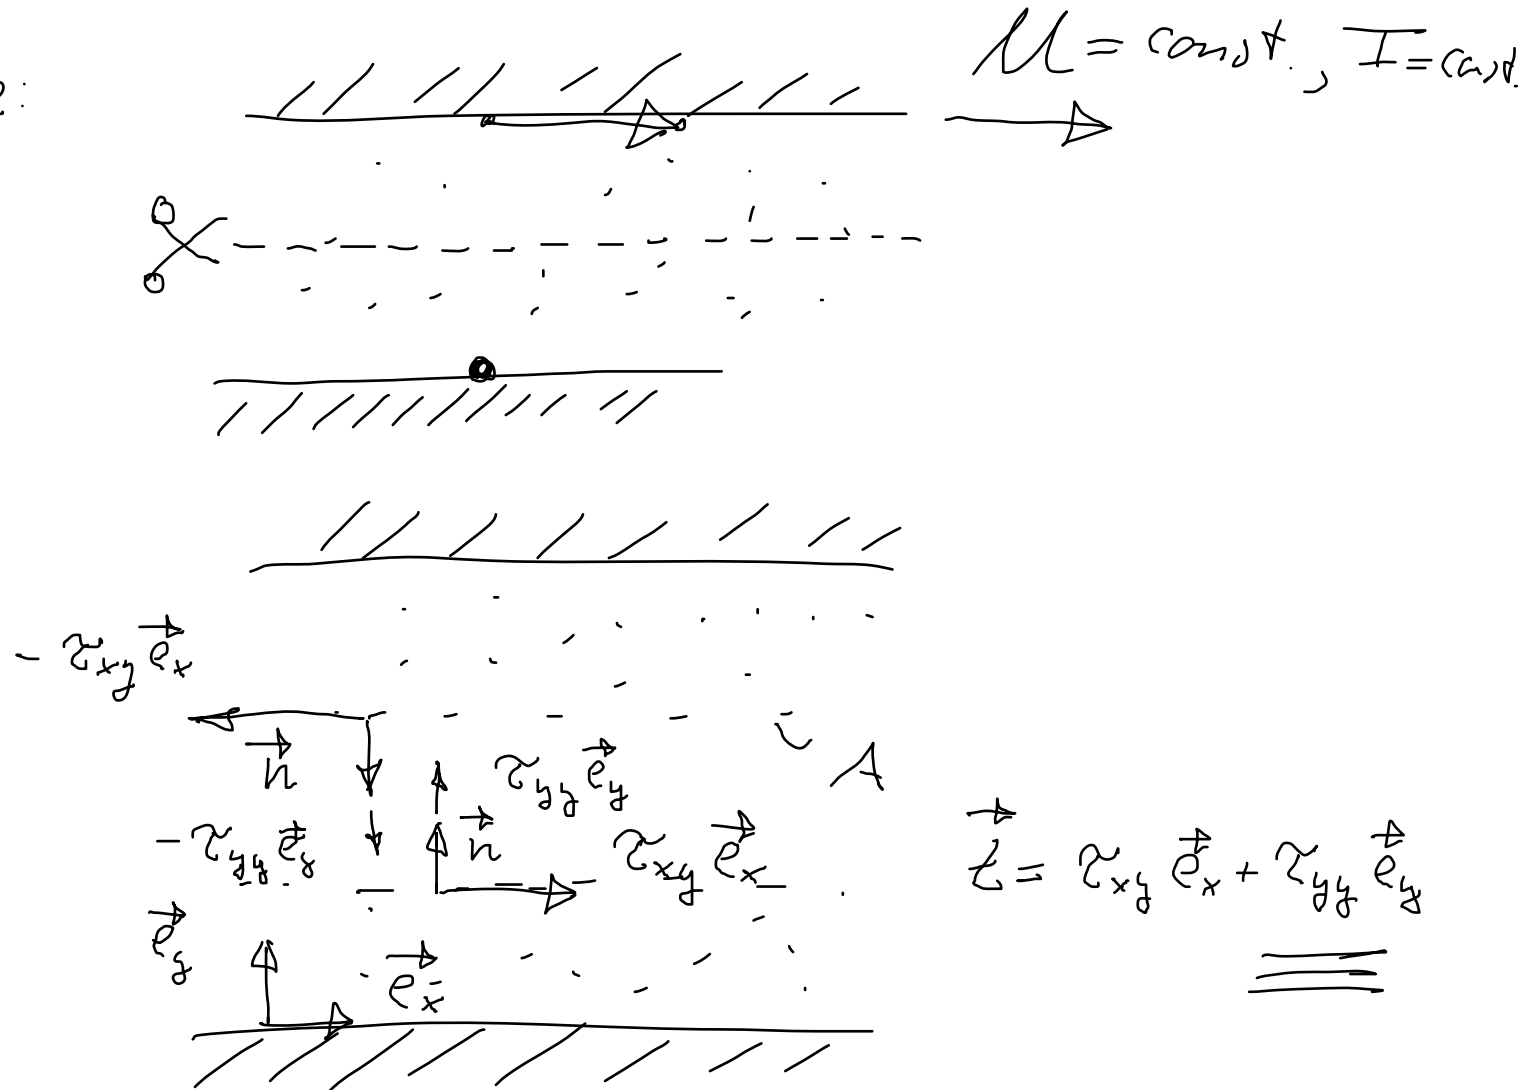 U = const., T = const.
- τ_xy e⃗_x
n⃗
τ_yy e⃗_y
A
- τ_yy e⃗_y
n⃗
τ_xy e⃗_x
t⃗ = τ_xy e⃗_x + τ_yy e⃗_y
e⃗_y
e⃗_x